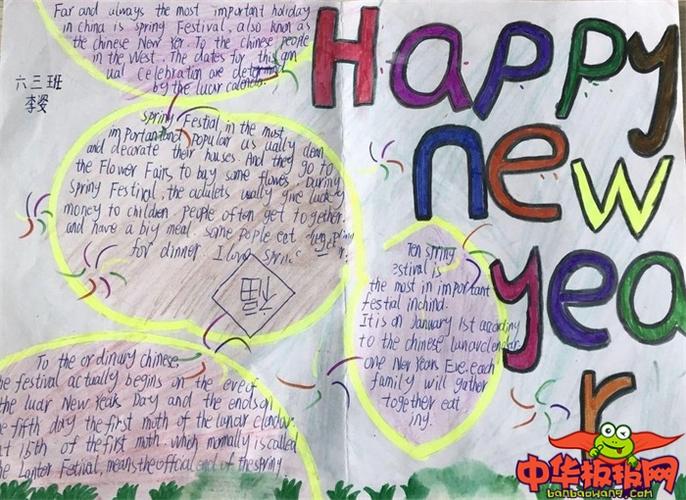 Far and always the most important holiday
in china is spring Festival, also knon as
the chinese New Yer. To the chinese people
in the West. The dates for this ann
ual celebration are determ
by the lunar calendar
六三班
李姿
Happy
new
year
spring Festial, in the most
important and Popular us ually clean
and decorate their houses. And they go to
the Flower Fairs to buy some flowes During
spring Festival, the adulets usally give lucky
money to children people often get together
and have a big meal some pople eat
for dinner I love spring
福
Ten spring
estival is
the most in important
festial inchind.
It is on January 1st according
to the chinese lunarclendar
one New Years Eve, each
family will gather
together eat
ing.
To the ordinary chinese,
he festival actually begins on the eve of
the luar New Years Day and the ends on
he fifth day the first moth of the lunar clendar.
ut 15th of the first moth. which mormally is called
he Lantor Festival, means the offical end of the spring
中华板报网
banbaowang.com